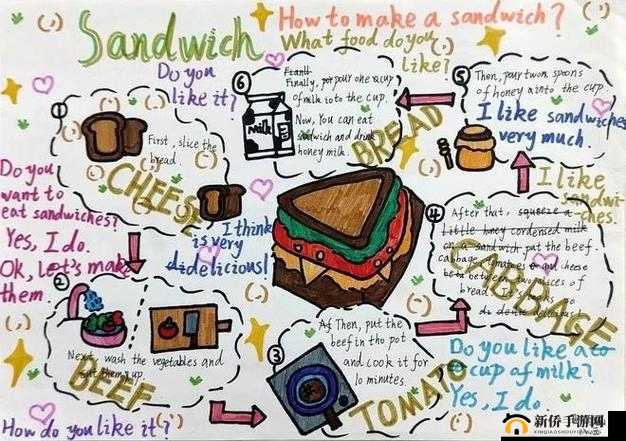 Sandwich
How to make a sandwich?
What food do you
like?
Do you
like it?
①
First, slice the
bread.
CHEESE
Do you
want to
eat sandwiches?
Yes, I do.
Ok, Let's make
them.
②
Next, wash the vegetables and
cut them up.
BEEF
How do you like it?
③
Then, put the
beef in tho pot
and cook it for
10 minutes.
TOMATO
④
After that, squeeze a
little honey condensed milk
on a sandwich put the beef.
cabbage tomatoes and cheese
between two slices of
bread.
CABBAGE
⑤
Then, pour two spoons
of honey a into the cup.
I like sandwiches
very much.
I like
sandwi-
ches.
⑥
Finally, pour one cup
of milk into the cup.
Now, You can eat
sandwich and drink
honey milk.
milk
BREAD
I think
is very
didelicious!
Do you like a to
cup of milk?
Yes, I do.
新侨手游网
XINQIAOSHOUYOUWANG